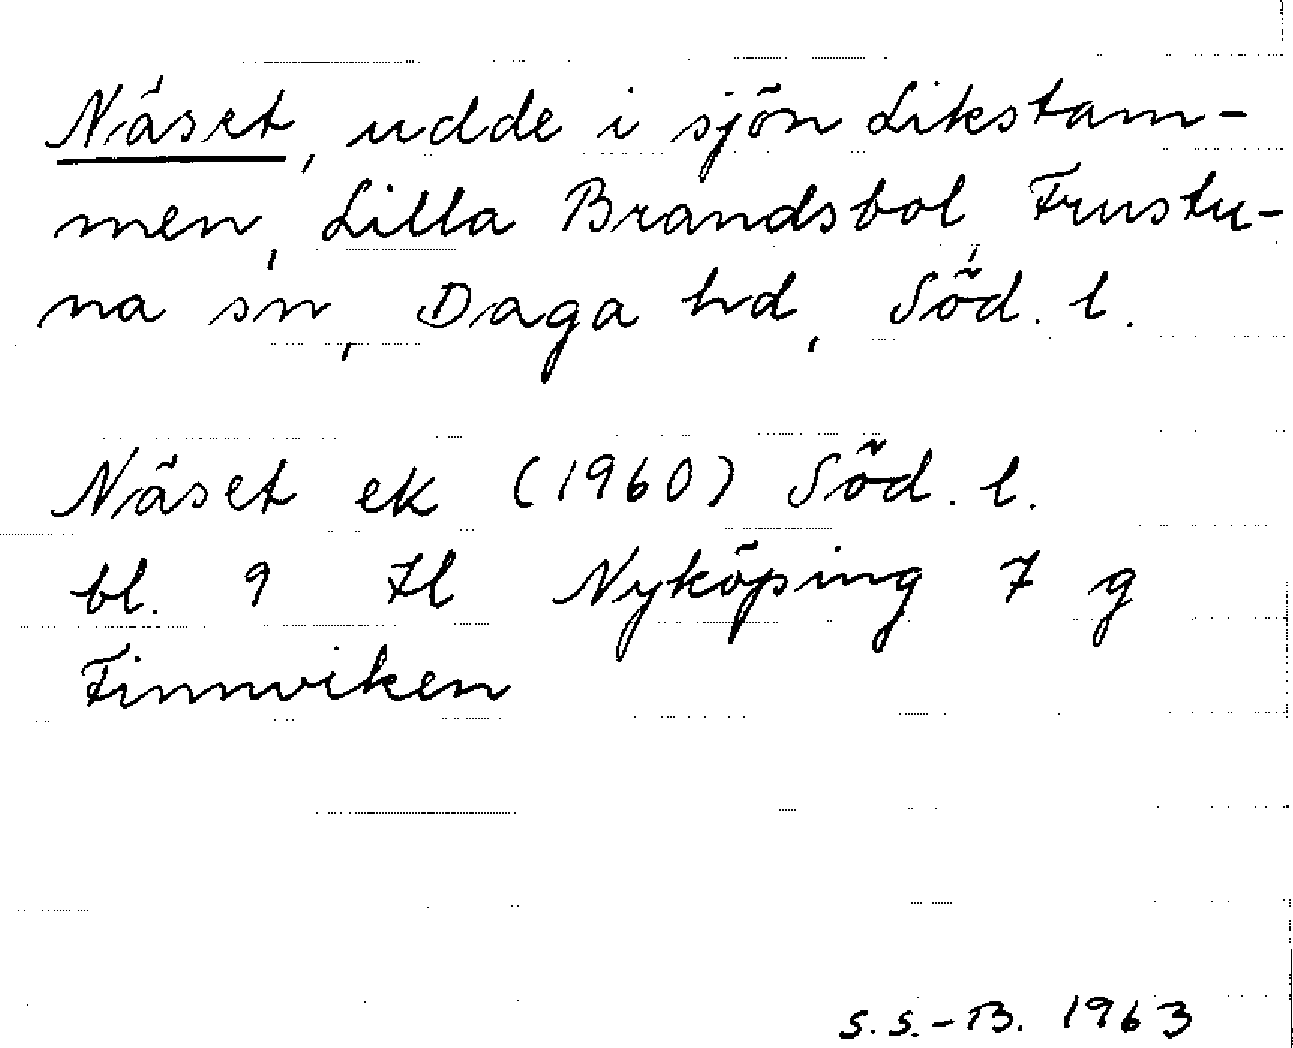 Näset, udde i sjön Likstam-
men, Lilla Brandsbol, Frustu-
na sn, Daga hd, Söd. l.
Näset ek (1960) Söd. l.
bl. 9 Hl Nyköping 7 g
Finnviken
S.S.-B. 1963